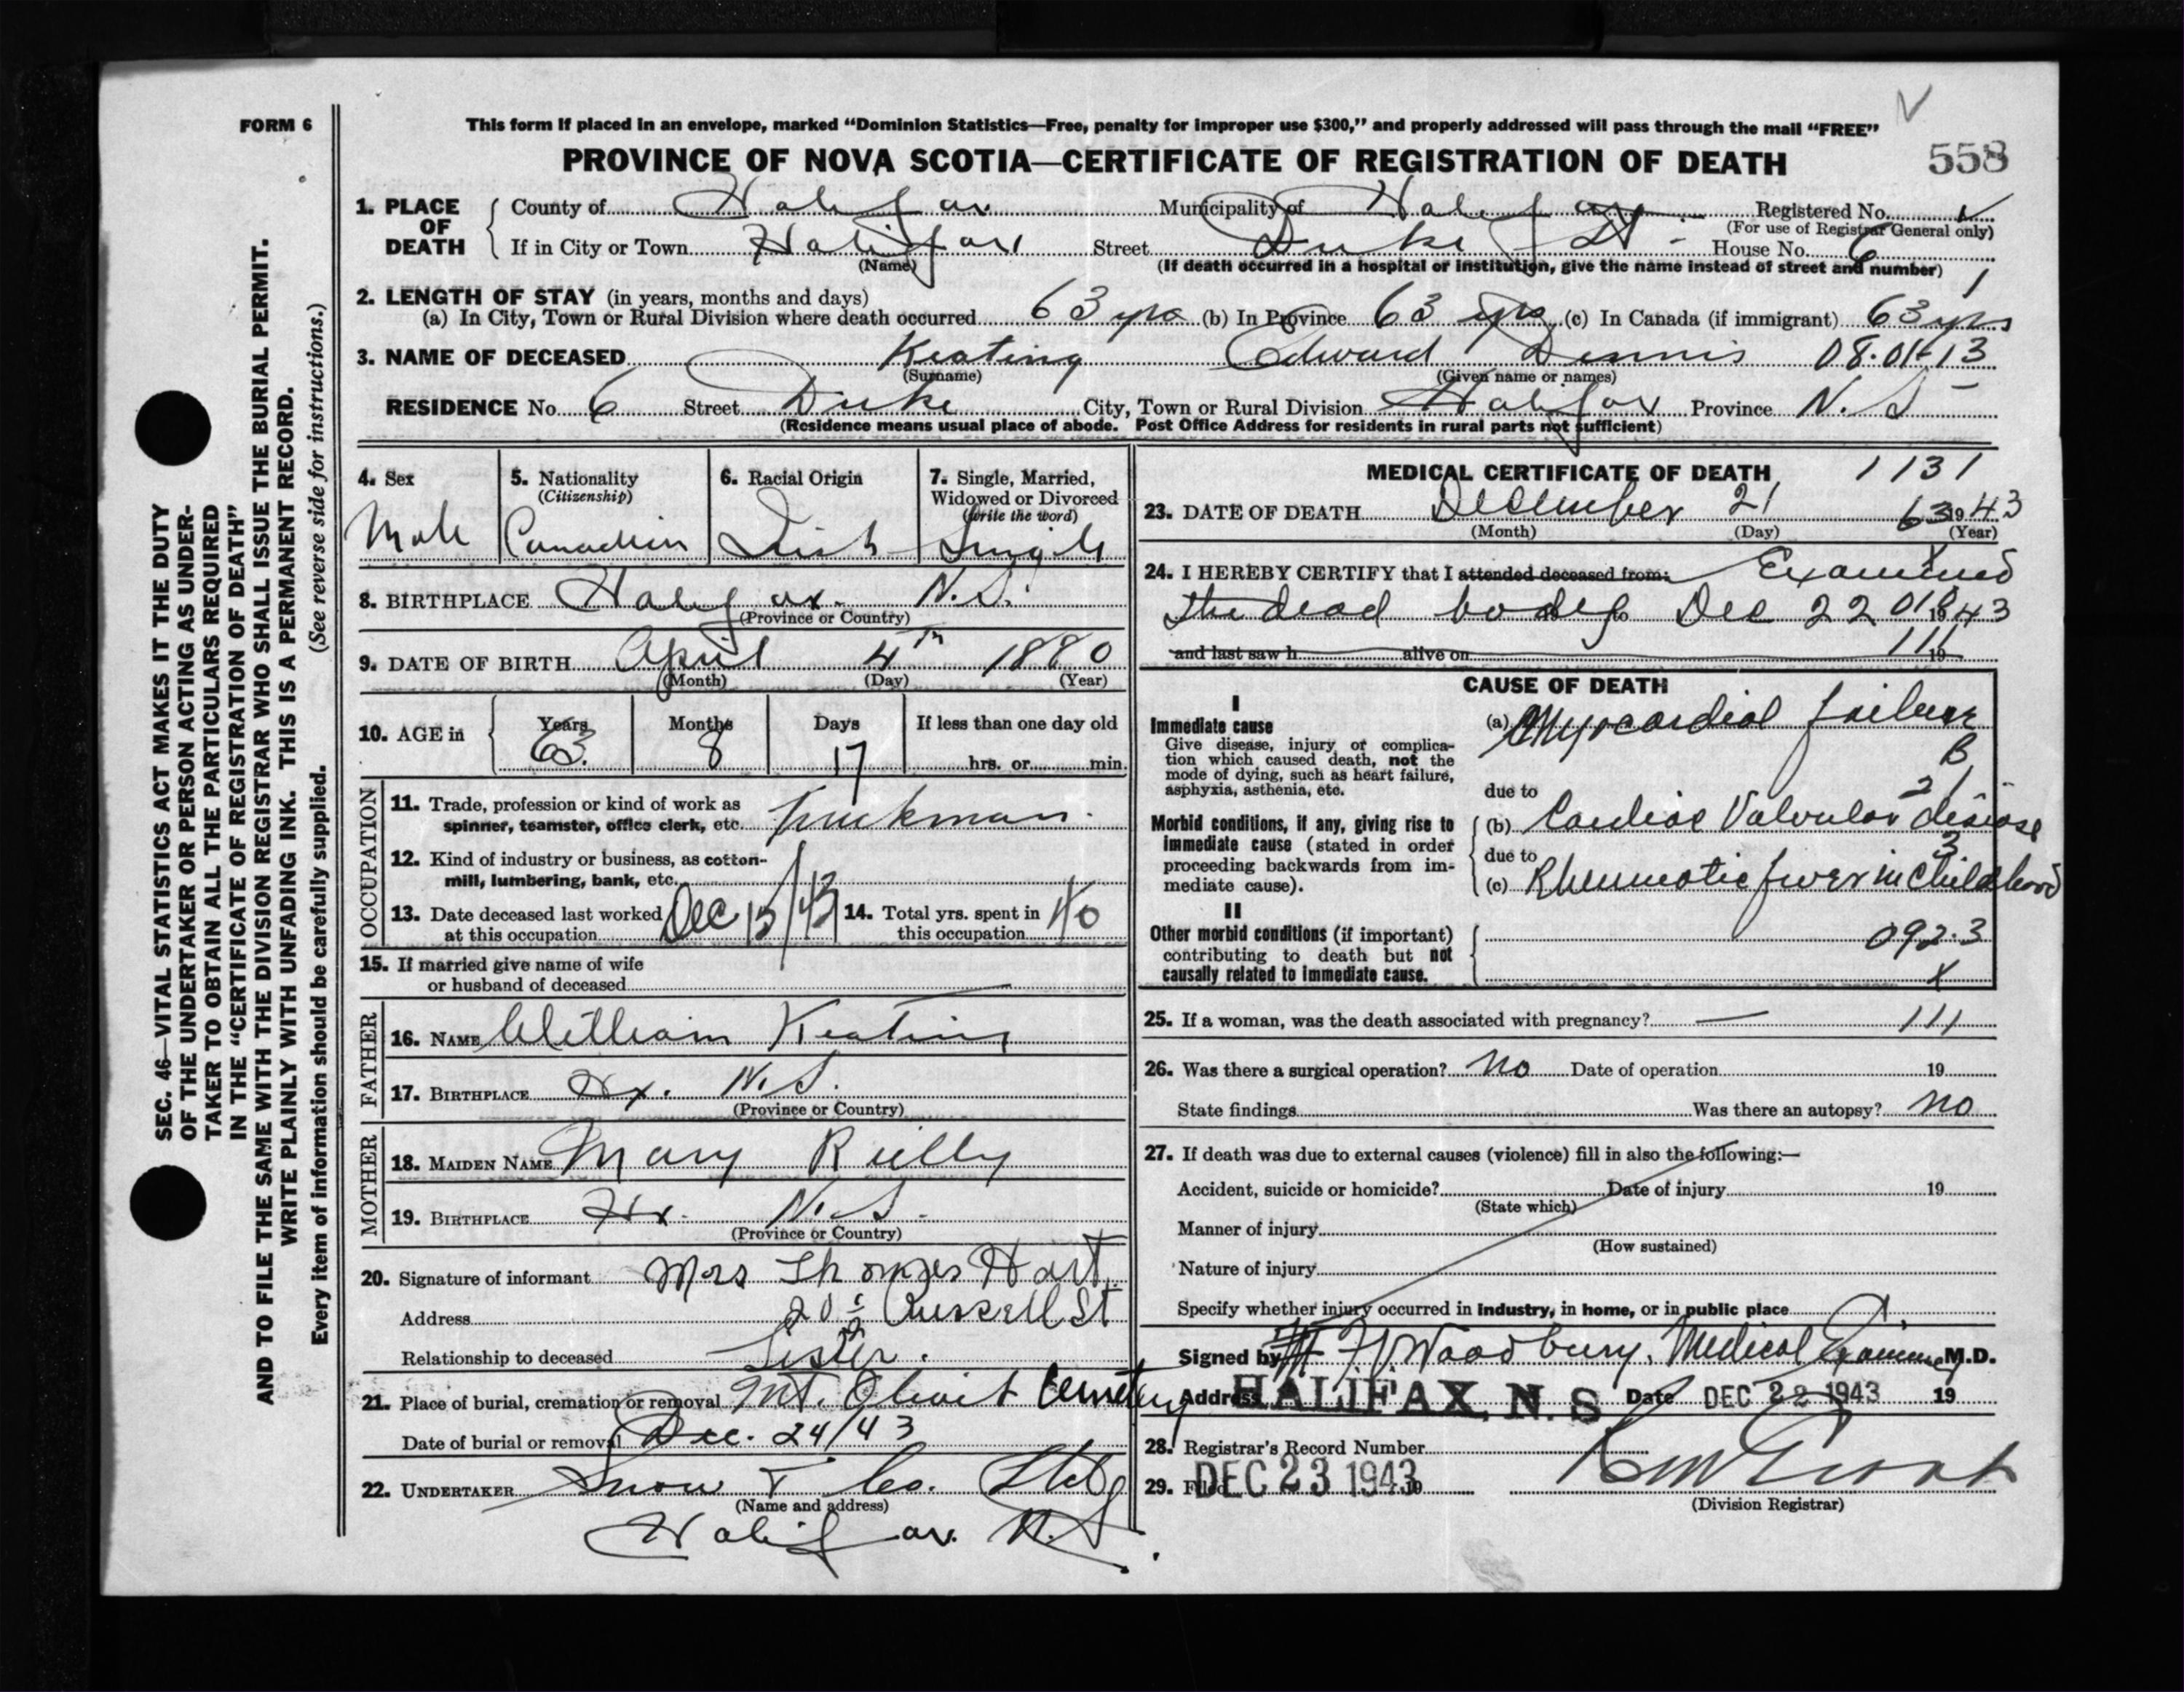 FORM 6
This form if placed in an envelope, marked “Dominion Statistics—Free, penalty for improper use $300,” and properly addressed will pass through the mail “FREE”
PROVINCE OF NOVA SCOTIA—CERTIFICATE OF REGISTRATION OF DEATH 558
1. PLACE OF DEATH
County of Halifax Municipality of Halifax Registered No.
(For use of Registrar General only)
If in City or Town Halifax Street Duke St House No. 6
(Name) (If death occurred in a hospital or institution, give the name instead of street and number) 1
2. LENGTH OF STAY (in years, months and days)
(a) In City, Town or Rural Division where death occurred 63 yrs (b) In Province 63 yrs (c) In Canada (if immigrant) 63 yrs
3. NAME OF DECEASED Keating Edward Dennis 08.01.13
(Surname) (Given name or names)
RESIDENCE No. 6 Street Duke City, Town or Rural Division Halifax Province N. S
(Residence means usual place of abode. Post Office Address for residents in rural parts not sufficient)
SEC. 46—VITAL STATISTICS ACT MAKES IT THE DUTY
OF THE UNDERTAKER OR PERSON ACTING AS UNDER-
TAKER TO OBTAIN ALL THE PARTICULARS REQUIRED
IN THE “CERTIFICATE OF REGISTRATION OF DEATH”
AND TO FILE THE SAME WITH THE DIVISION REGISTRAR WHO SHALL ISSUE THE BURIAL PERMIT.
WRITE PLAINLY WITH UNFADING INK. THIS IS A PERMANENT RECORD.
Every item of information should be carefully supplied. (See reverse side for instructions.)
4. Sex
Male
5. Nationality
(Citizenship)
Canadian
6. Racial Origin
Irish
7. Single, Married,
Widowed or Divorced
(Write the word)
Single
8. BIRTHPLACE Halifax. N.S.
(Province or Country)
9. DATE OF BIRTH April 4th 1880
(Month) (Day) (Year)
10. AGE in Years Months Days If less than one day old
63. 8 17 hrs. or min.
OCCUPATION
11. Trade, profession or kind of work as
spinner, teamster, office clerk, etc. Truckman.
12. Kind of industry or business, as cotton-
mill, lumbering, bank, etc.
13. Date deceased last worked
at this occupation Dec 15/43
14. Total yrs. spent in
this occupation 40
15. If married give name of wife
or husband of deceased
FATHER
16. NAME William Keating
17. BIRTHPLACE Hx. N.S.
(Province or Country)
MOTHER
18. MAIDEN NAME Mary Reilly
19. BIRTHPLACE Hx. N.S.
(Province or Country)
20. Signature of informant Mrs Thomas Hart
Address Russell St
Relationship to deceased Sister.
21. Place of burial, cremation or removal Mt. Olivet Cemetery
Date of burial or removal Dec. 24/43
22. UNDERTAKER Snow & Co. Ltd
(Name and address)
Halifax. N.S.
MEDICAL CERTIFICATE OF DEATH 1131
23. DATE OF DEATH December 21 63 1943
(Month) (Day) (Year)
24. I HEREBY CERTIFY that I attended deceased from: Examined
the dead body to Dec 22 018 1943
and last saw h alive on 111 19
CAUSE OF DEATH
I
Immediate cause
Give disease, injury or complica-
tion which caused death, not the
mode of dying, such as heart failure,
asphyxia, asthenia, etc.
(a) Myocardial failure
B
due to 21
Morbid conditions, if any, giving rise to
immediate cause (stated in order
proceeding backwards from im-
mediate cause).
(b) Cardiac Valvular disease
due to 3
(c) Rheumatic fever in Childhood
II
Other morbid conditions (if important)
contributing to death but not
causally related to immediate cause.
092.3
X
25. If a woman, was the death associated with pregnancy? — 111
26. Was there a surgical operation? No Date of operation 19
State findings Was there an autopsy? No
27. If death was due to external causes (violence) fill in also the following:—
Accident, suicide or homicide? Date of injury 19
(State which)
Manner of injury
(How sustained)
Nature of injury
Specify whether injury occurred in industry, in home, or in public place
Signed by Woodbury, Medical Examiner M.D.
Address HALIFAX, N. S. Date DEC 22 1943 19
28. Registrar's Record Number
29. Filed DEC 23 1943 19
(Division Registrar)